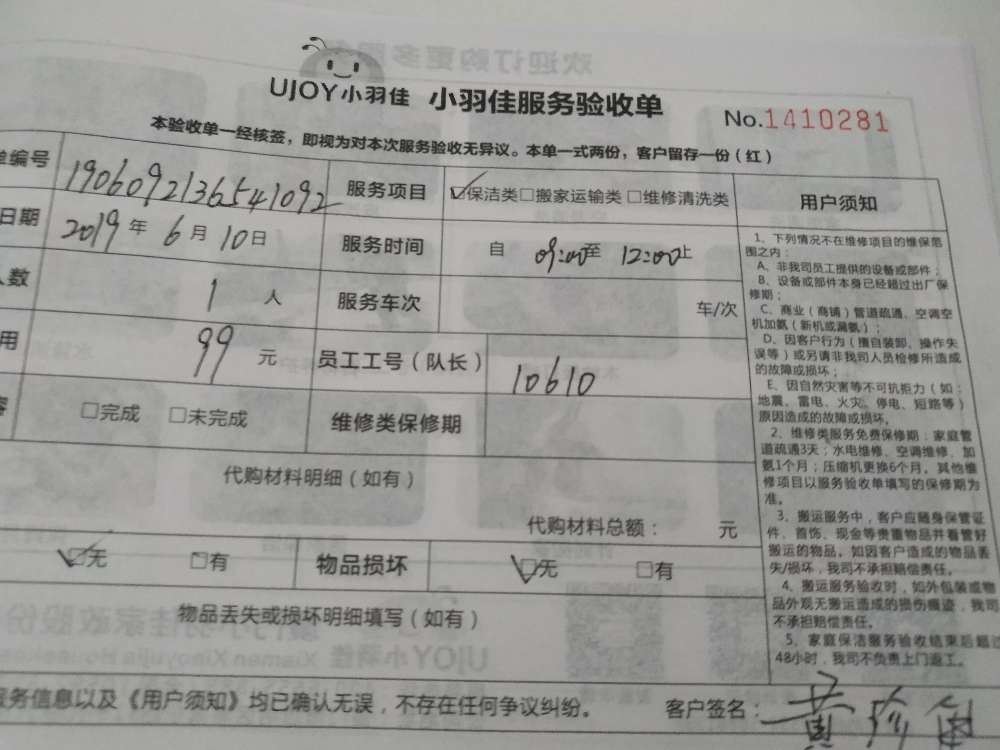 UJOY小羽佳 小羽佳服务验收单
No.1410281
本验收单一经核签，即视为对本次服务验收无异议。本单一式两份，客户留存一份（红）
单编号 1906092136541092 服务项目 ☑保洁类□搬家运输类□维修清洗类
日期 2019年6月10日 服务时间 自 09:00至 12:00止
人数 1 人 服务车次 车/次
用 99 元 员工工号（队长） 10610
□完成 □未完成 维修类保修期
代购材料明细（如有）
代购材料总额： 元
☑无 □有 物品损坏 ☑无 □有
物品丢失或损坏明细填写（如有）
服务信息以及《用户须知》均已确认无误，不存在任何争议纠纷。 客户签名：黄珍
用户须知
1、下列情况不在维修项目的维保范
围之内：
A、非我司员工提供的设备或部件；
B、设备或部件本身已经超过出厂保
修期；
C、商业（商铺）管道疏通、空调空
机加氨（新机或漏氨）；
D、因客户行为（擅自装卸、操作失
误等）或另请非我司人员检修所造成
的故障或损坏；
E、因自然灾害等不可抗拒力（如：
地震、雷电、火灾、停电、短路等）
原因造成的故障或损坏。
2、维修类服务免费保修期：家庭管
道疏通3天；水电维修、空调维修、加
氨1个月；压缩机更换6个月。其他维
修项目以服务验收单填写的保修期为
准。
3、搬运服务中，客户应随身保管证
件、首饰、现金等贵重物品并看管好
搬运的物品。如因客户造成的物品丢
失/损坏，我司不承担赔偿责任。
4、搬运服务验收时，如外包装或物
品外观无搬运造成的损伤痕迹，我司
不承担赔偿责任。
5、家庭保洁服务验收结束后超过
48小时，我司不负责上门返工。